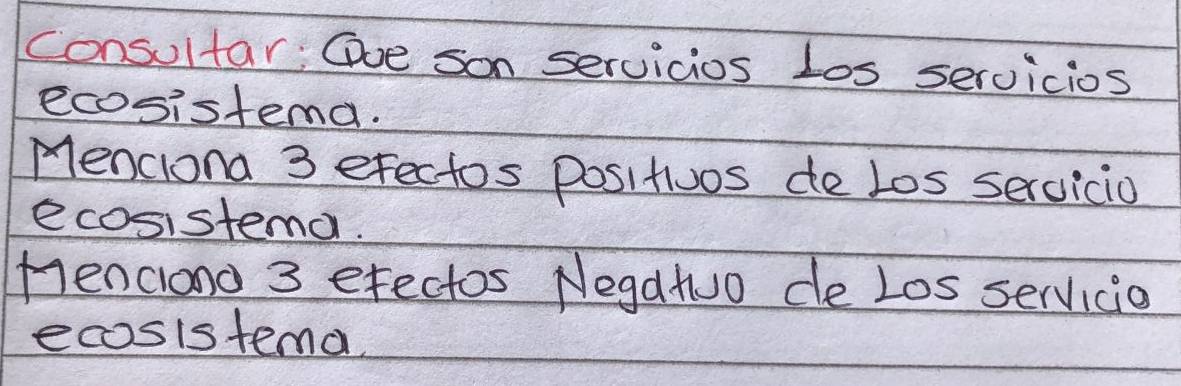 Consultar: Que son servicios Los servicios
ecosistema.
Menciona 3 efectos positivos de Los servicio
ecosistema.
Menciona 3 efectos Negativo de Los servicio
ecosistema.